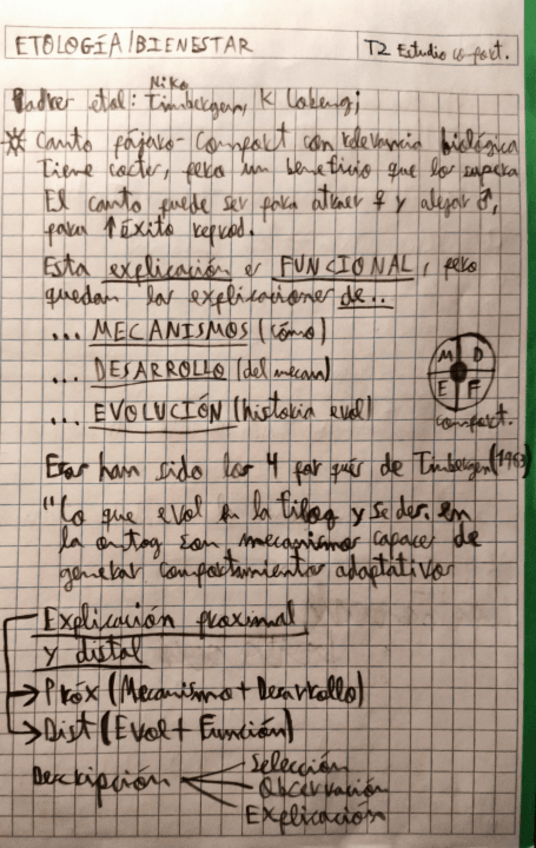 ETOLOGÍA/BIENESTAR
T2 Estudio comport.
Niko
Padres etol: Timbergen, K Lorenz;
Canto pájaro - Comport con relevancia biológica
Tiene costes, pero un beneficio que los supera
El canto puede ser para atraer ♀ y alejar ♂,
para ↑ Éxito reprod.
Esta explicación es FUNCIONAL, pero
quedan las explicaciones de..
... MECANISMOS (cómo)
... DESARROLLO (del mecan)
... EVOLUCIÓN (historia evol)
M D
E F
comport.
Esos han sido los 4 por qués de Timbergen (1963)
"Lo que evol en la filog y se des. en
la ontog son mecanismos capaces de
generar comportamientos adaptativos
Explicación proximal
y distal
→ Próx (Mecanismo + Desarrollo)
→ Dist (Evol + Función)
Descripción
Selección
Observación
Explicación